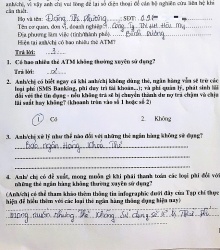 anh/chị, vì vậy anh chị vui lòng để lại số điện thoại để cán bộ nghiên cứu liên hệ khi
cần thiết.
Họ và tên: Đặng Thị Phương SĐT: 09
Tên cơ quan, đơn vị, doanh nghiệp: Công Ty
Địa phương làm việc (tỉnh/thành phố): Bình Dương
Hiện tại anh/chị có bao nhiêu thẻ ATM?
Trả lời: 3
1. Có bao nhiêu thẻ ATM không thường xuyên sử dụng?
Trả lời: 2
2. Anh/chị có biết ngay cả khi anh/chị không dùng thẻ, ngân hàng vẫn sẽ trừ các
loại phí (SMS Banking, phí duy trì tài khoản...); và phí quản lý, phát sinh lãi
đối với thẻ tín dụng - nếu không trả sẽ bị chuyển thành dư nợ trả chậm và chịu
lãi suất hay không? (khoanh tròn vào số 1 hoặc số 2)
1 Có 2. Không
3. Anh/chị xử lý như thế nào đối với những thẻ ngân hàng không sử dụng?
Báo ngân Hàng Khóa Thẻ
4. Anh/ chị có đề xuất, mong muốn gì khi phải thanh toán các loại phí đối với
những thẻ ngân hàng không thường xuyên sử dụng?
(Anh/chị có thể tham khảo thêm thông tin infographic dưới đây của Tạp chí thực
hiện để hiểu thêm với các loại thẻ ngân hàng thông dụng hiện nay)
mong muốn những thẻ Không Sử dụng sẽ Thu Phí